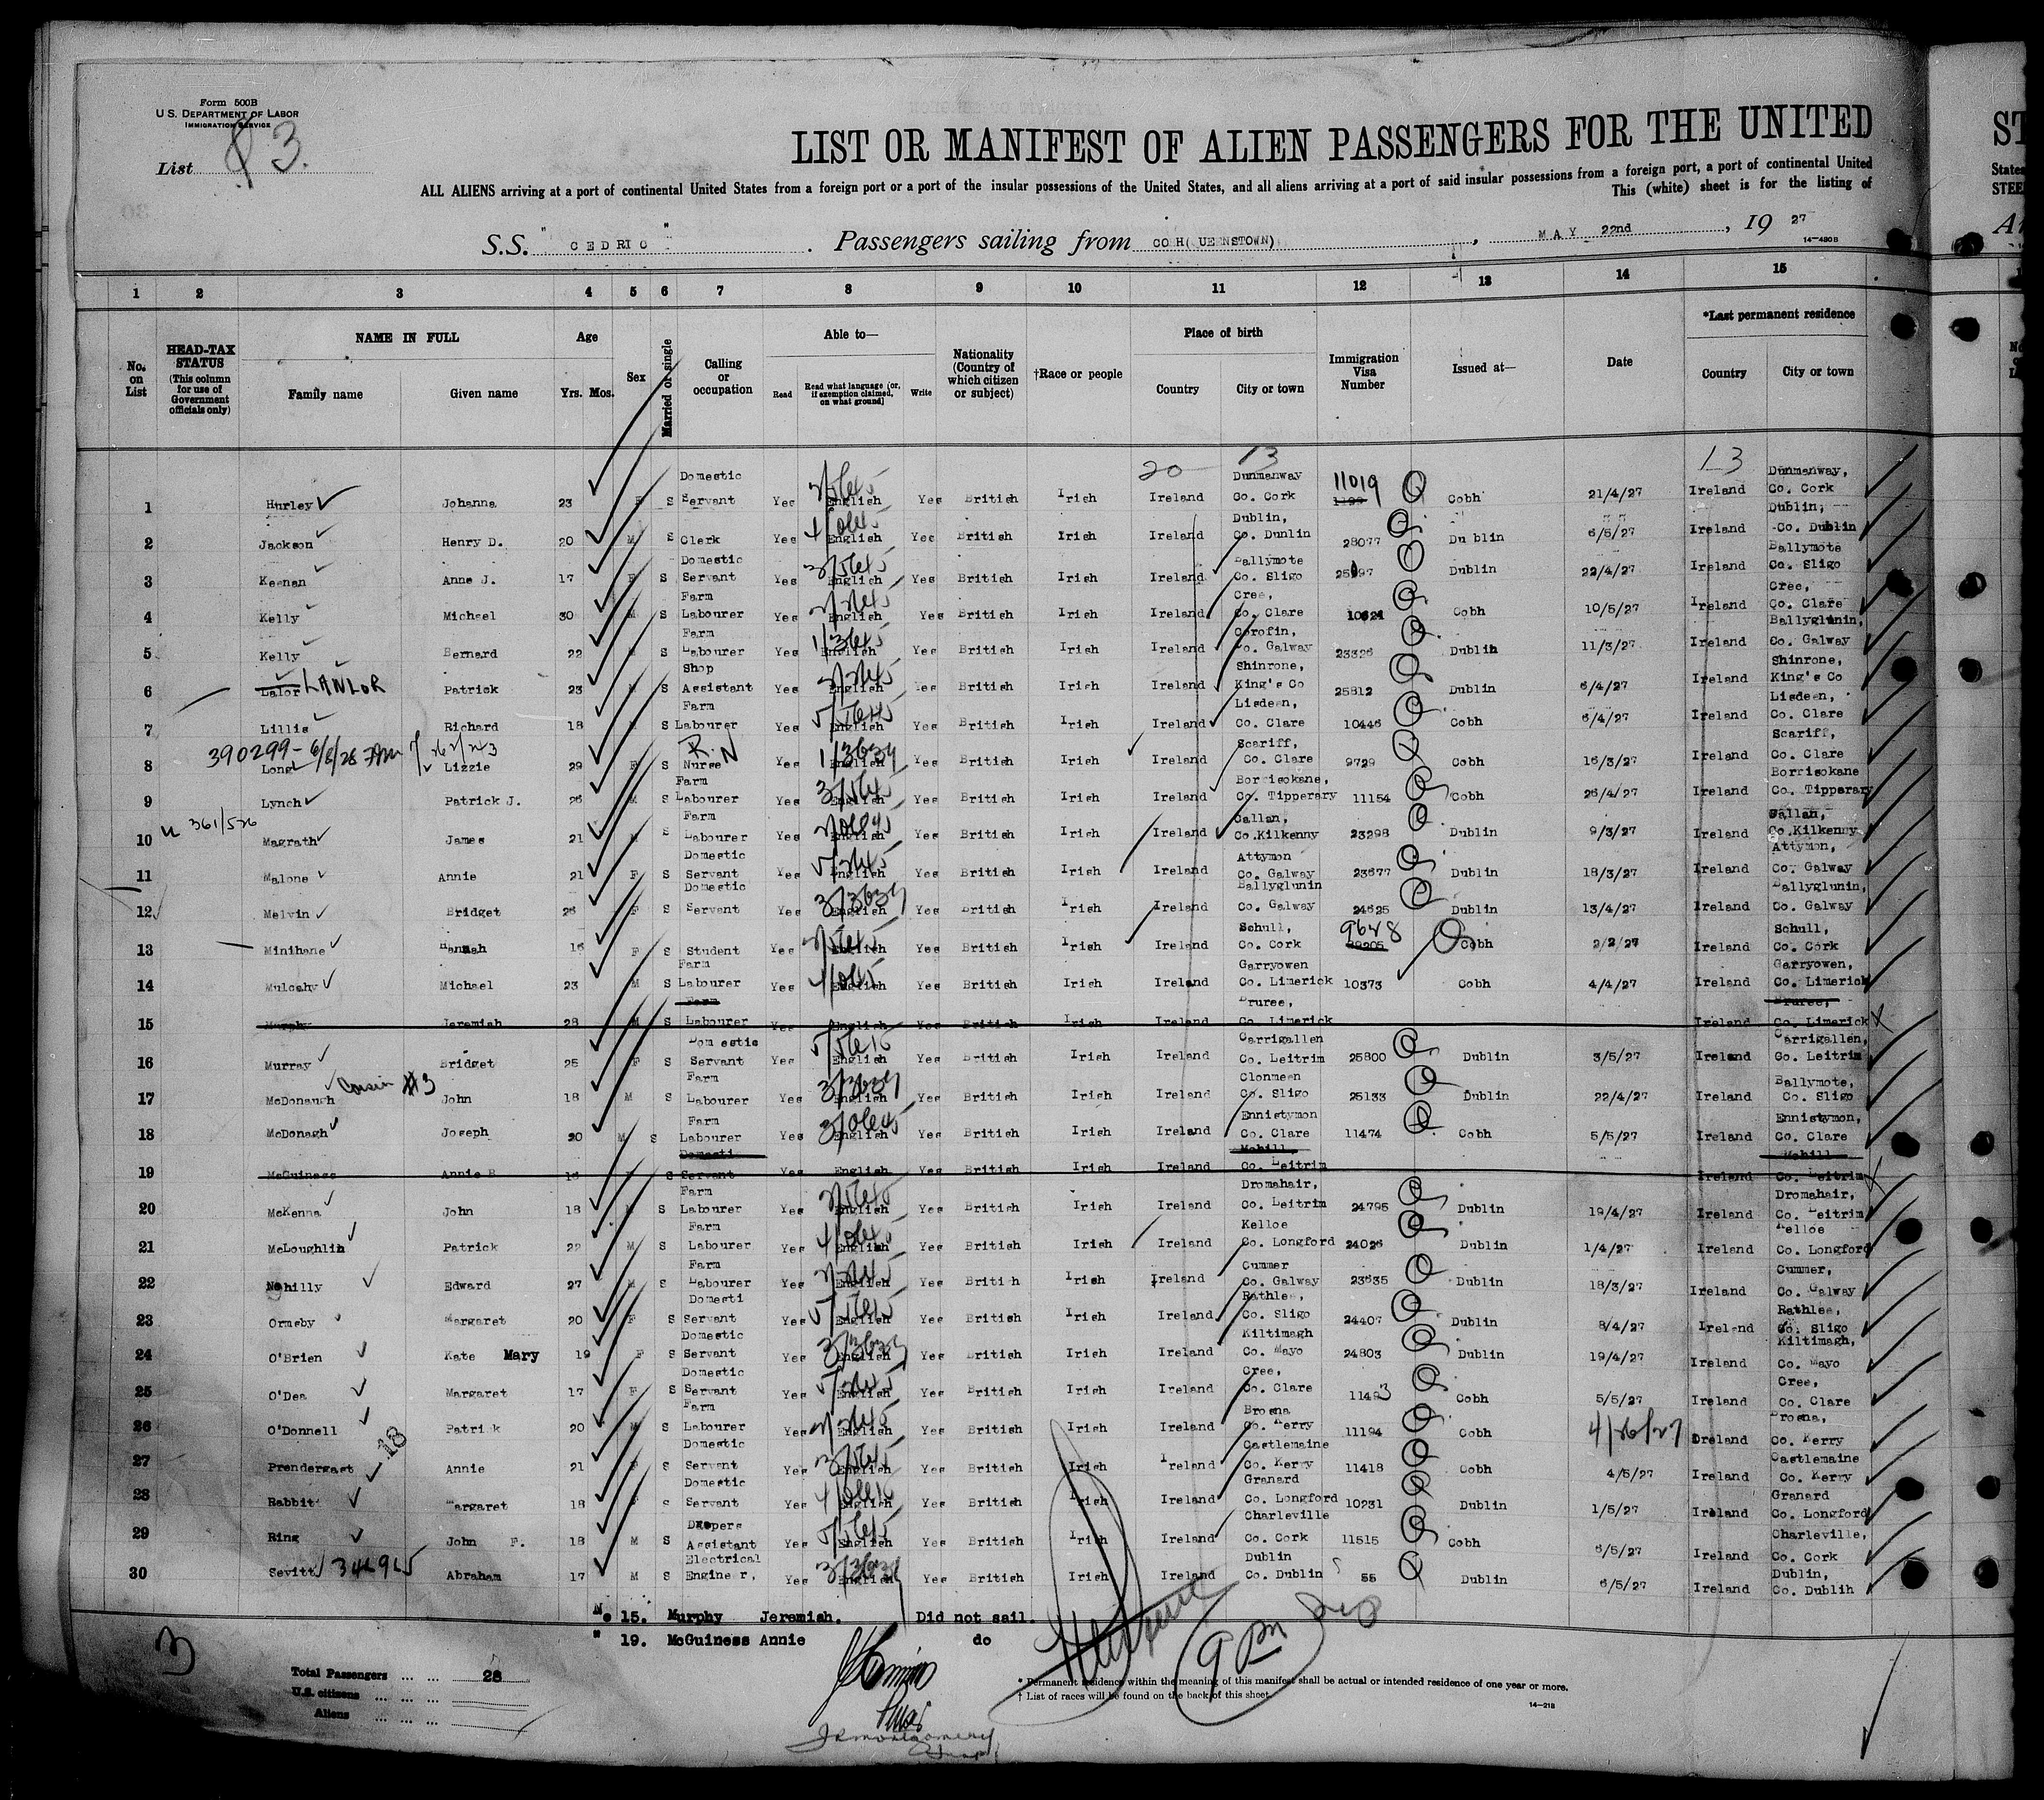 Form 500B
U. S. DEPARTMENT OF LABOR
IMMIGRATION SERVICE
List 3.
LIST OR MANIFEST OF ALIEN PASSENGERS FOR THE UNITED
ALL ALIENS arriving at a port of continental United States from a foreign port or a port of the insular possessions of the United States, and all aliens arriving at a port of said insular possessions from a foreign port, a port of continental United
This (white) sheet is for the listing of
S.S. "CEDRIC" . Passengers sailing from COH( UEENSTOWN) , MAY 22nd , 19 27
14—480B
1 2 3 4 5 6 7 8 9 10 11 12 13 14 15
No. on List
HEAD-TAX STATUS (This column for use of Government officials only)
NAME IN FULL Family name Given name
Age Yrs. Mos.
Sex
Married or single
Calling or occupation
Able to— Read Read what language [or, if exemption claimed, on what ground] Write
Nationality (Country of which citizen or subject)
†Race or people
Place of birth Country City or town
Immigration Visa Number
Issued at—
Date
*Last permanent residence Country City or town
20 13 13
1 Hurley Johanna 23 F S Domestic Servant Yes English Yes British Irish Ireland Dunmanway Co. Cork 11019 Cobh 21/4/27 Ireland Dunmanway, Co. Cork
2 Jackson Henry D. 20 M S Clerk Yes English Yes British Irish Ireland Dublin, Co. Dunlin 28077 Du blin 6/5/27 Ireland Dublin, Co. Dublin
3 Keenan Anne J. 17 F S Domestic Servant Yes English Yes British Irish Ireland Ballymote Co. Sligo Dublin 22/4/27 Ireland Ballymote Co. Sligo
4 Kelly Michael 30 M S Farm Labourer Yes English Yes British Irish Ireland Cree, Co. Clare 10624 Cobh 10/5/27 Ireland Cree, Co. Clare
5 Kelly Bernard 22 M S Farm Labourer Yes English Yes British Irish Ireland Corofin, Co. Galway 23326 Dublin 11/3/27 Ireland Ballyglunin, Co. Galway
6 Lalor LAWLOR Patrick 23 M S Shop Assistant Yes English Yes British Irish Ireland Shinrone, King's Co 25812 Dublin 6/4/27 Ireland Shinrone, King's Co
7 Lillis Richard 18 M S Farm Labourer Yes English Yes British Irish Ireland Lisdeen, Co. Clare 10446 Cobh 6/4/27 Ireland Lisdeen, Co. Clare
390299 - 6/8/28
8 Long Lizzie 29 F S R. N Nurse Yes English Yes British Irish Ireland Scariff, Co. Clare 9729 Cobh 16/3/27 Ireland Scariff, Co. Clare
9 Lynch Patrick J. 26 M S Farm Labourer Yes English Yes British Irish Ireland Borrisokane, Co. Tipperary 11154 Cobh 26/4/27 Ireland Borrisokane Co. Tipperary
361/576
10 Magrath James 21 M S Farm Labourer Yes English Yes British Irish Ireland Callan, Co.Kilkenny 23298 Dublin 9/3/27 Ireland Callan, Co.Kilkenny
11 Malone Annie 21 F S Domestic Servant Yes English Yes British Irish Ireland Attymon Co. Galway 23677 Dublin 18/3/27 Ireland Attymon, Co. Galway
12 Melvin Bridget 26 F S Domestic Servant Yes English Yes British Irish Ireland Ballyglunin Co. Galway 24625 Dublin 13/4/27 Ireland Ballyglunin, Co. Galway
13 Minihane Hannah 16 F S Student Yes English Yes British Irish Ireland Schull, Co. Cork 9648 Cobh 2/2/27 Ireland Schull, Co. Cork
14 Mulcahy Michael 23 M S Farm Labourer Yes English Yes British Irish Ireland Garryowen Co. Limerick 10373 Cobh 4/4/27 Ireland Garryowen, Co. Limerick
15 Murphy Jeremiah 28 M S Farm Labourer Yes English Yes British Irish Ireland Bruree, Co. Limerick Ireland Bruree, Co. Limerick
16 Murray Bridget 25 F S Domestic Servant Yes English Yes British Irish Ireland Carrigallen Co. Leitrim 25800 Dublin 3/5/27 Ireland Carrigallen, Co. Leitrim
17 McDonaugh Cousin #3 John 18 M S Farm Labourer Yes English Yes British Irish Ireland Clonmeen Co. Sligo 25133 Dublin 22/4/27 Ireland Ballymote, Co. Sligo
18 McDonagh Joseph 20 M S Farm Labourer Yes English Yes British Irish Ireland Ennistymon Co. Clare 11474 Cobh 5/5/27 Ireland Ennistymon, Co. Clare
19 McGuiness Annie B 18 F S Domesti Servant Yes English Yes British Irish Ireland Mohill, Co. Leitrim Ireland Mohill Co. Leitrim
20 McKenna John 18 M S Farm Labourer Yes English Yes British Irish Ireland Dromahair, Co. Leitrim 24795 Dublin 19/4/27 Ireland Dromahair, Co. Leitrim
21 McLoughlin Patrick 22 M S Farm Labourer Yes English Yes British Irish Ireland Kelloe Co. Longford 24026 Dublin 1/4/27 Ireland Kelloe Co. Longford
22 Nohilly Edward 27 M S Farm Labourer Yes English Yes British Irish Ireland Cummer Co. Galway 23635 Dublin 18/3/27 Ireland Cummer, Co. Galway
23 Ormsby Margaret 20 F S Domesti Servant Yes English Yes British Irish Ireland Rathlee, Co. Sligo 24407 Dublin 8/4/27 Ireland Rathlee, Co. Sligo
24 O'Brien Kate Mary 19 F S Domestic Servant Yes English Yes British Irish Ireland Kiltimagh Co. Mayo 24803 Dublin 19/4/27 Ireland Kiltimagh, Co. Mayo
25 O'Dea Margaret 17 F S Domestic Servant Yes English Yes British Irish Ireland Cree, Co. Clare 11493 Cobh 5/5/27 Ireland Cree, Co. Clare
26 O'Donnell Patrick 20 M S Farm Labourer Yes English Yes British Irish Ireland Brosna Co. Kerry 11194 Cobh 4/26/27 Ireland Brosna, Co. Kerry
27 Prendergast 18 Annie 21 F S Domestic Servant Yes English Yes British Irish Ireland Castlemaine Co. Kerry 11418 Cobh 4/5/27 Ireland Castlemaine Co. Kerry
28 Rabbit Margaret 18 F S Domestic Servant Yes English Yes British Irish Ireland Granard Co. Longford 10231 Dublin 1/5/27 Ireland Granard Co. Longford
29 Ring John F. 18 M S Drapers Assistant Yes English Yes British Irish Ireland Charleville Co. Cork 11515 Cobh 6/5/27 Ireland Charleville, Co. Cork
30 Sevitt Abraham 17 M S Electrical Engineer, Yes English Yes British Irish Ireland Dublin Co. Dublin 55 Dublin 6/5/27 Ireland Dublin, Co. Dublin
No 15. Murphy Jeremiah. Did not sail.
" 19. McGuiness Annie do
3
9 pm
Total Passengers ... ... 28
U.S. citizens ... ... ...
Aliens ... ... ...
* Permanent residence within the meaning of this manifest shall be actual or intended residence of one year or more.
† List of races will be found on the back of this sheet.
14—218
ST
States
STEE